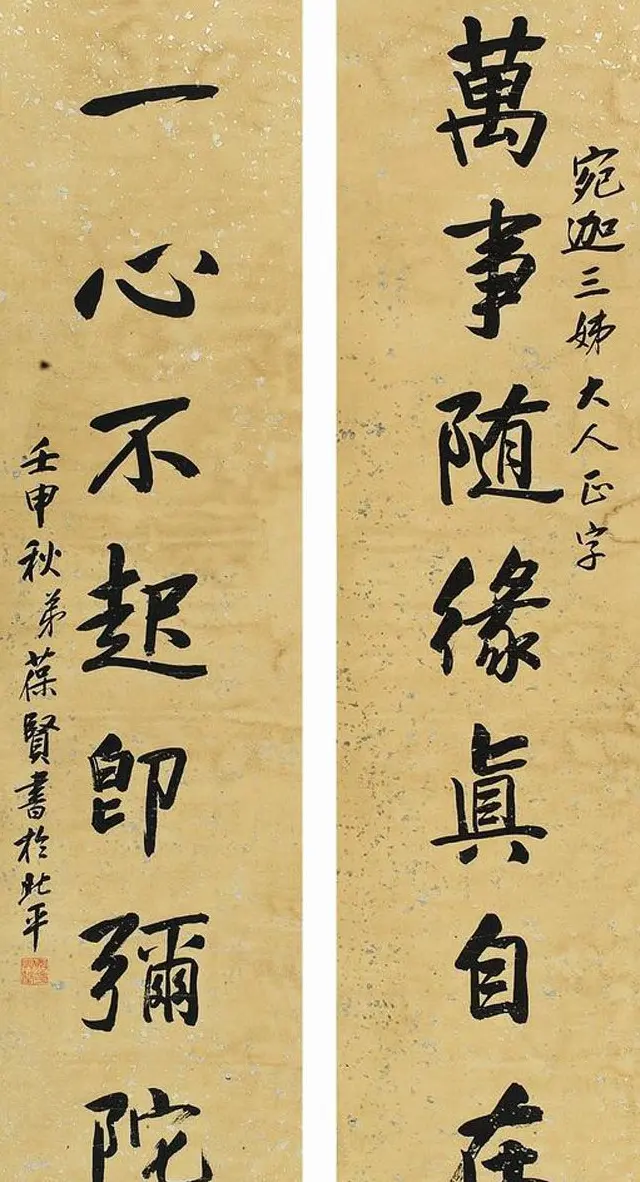 宛迦三姊大人正字
萬事随緣眞自在
一心不起即彌陀
壬申秋弟葆賢書於北平